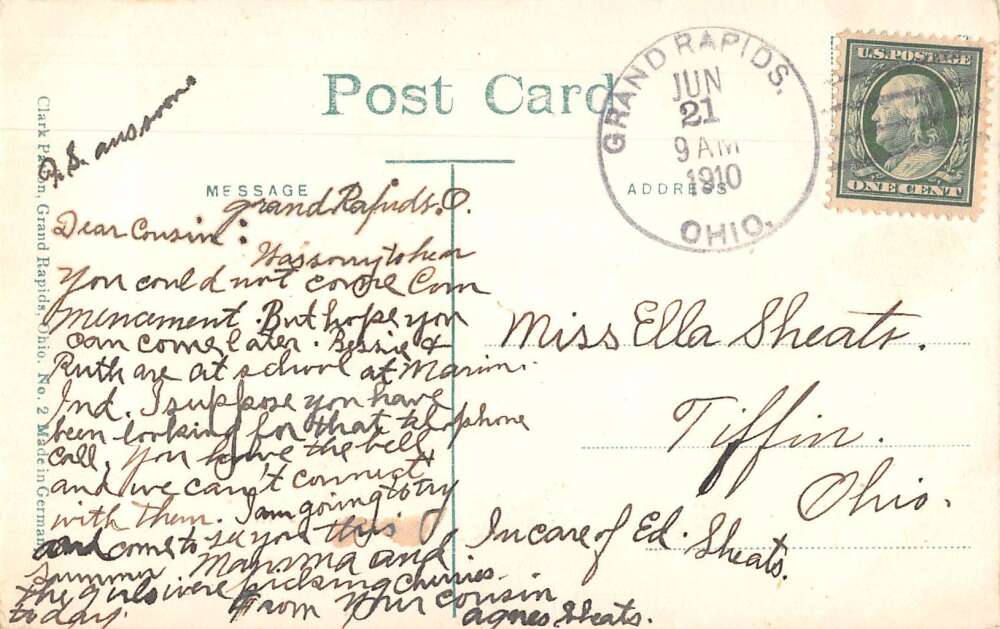 Post Card
GRAND RAPIDS,
JUN
21
9 AM
1910
OHIO.
U.S. POSTAGE
ONE CENT
MESSAGE
ADDRESS
Clark, Grand Rapids, Ohio. No. 2 Made in German
P.S. ans soon
Grand Rapids. O.
Dear Cousin:
Was sorry to hear
You could not come Com
mencement. But hope you
can come later. Bessie &
Ruth are at school at Marion.
Ind. I suppose you have
been looking for that telephone
call, you have the bell
and we can't connect
with them. I am going to try
and come to see you this
summer Mamma and
the girls were picking cherries
today. From Your cousin
Agnes Sheats.
Miss Ella Sheats.
Tiffin.
Ohio.
In care of Ed. Sheats.